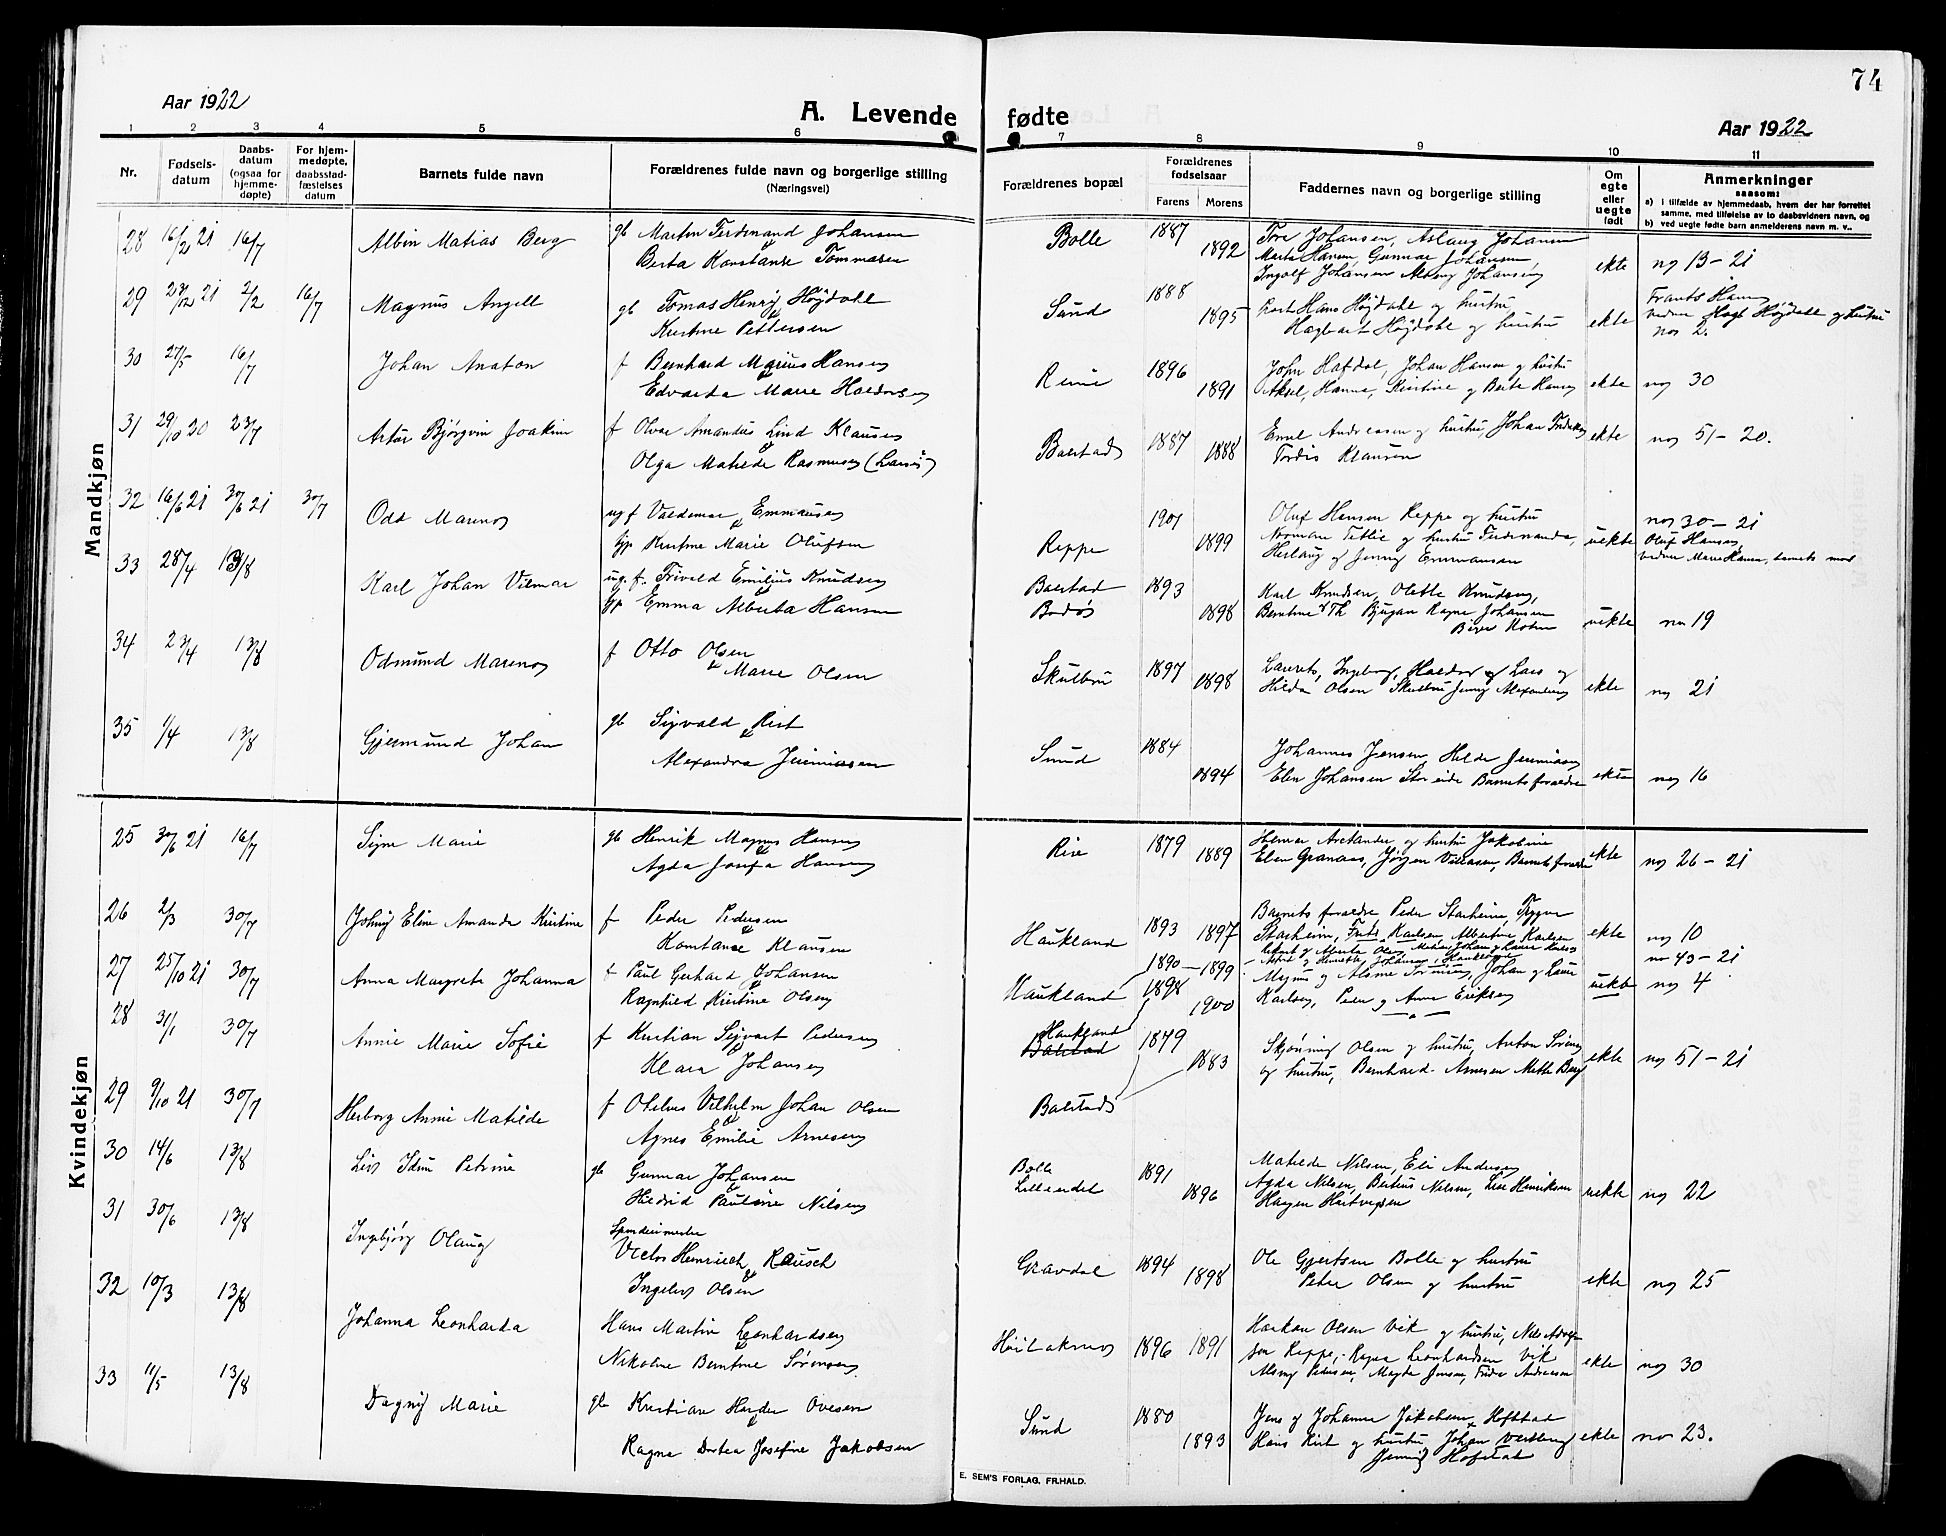 74
Aar 1922
A. Levende fødte
Aar 1922
1 2 3 4 5 6 7 8 9 10 11
Nr.
Fødselsdatum
Daabsdatum (ogsaa for hjemmedøpte)
For hjemmedøpte, daabsstadfæstelses datum
Barnets fulde navn
Forældrenes fulde navn og borgerlige stilling
(Næringsvei)
Forældrenes bopæl
Forældrenes fødselsaar
Farens Morens
Faddernes navn og borgerlige stilling
Om egte eller uegte født
Anmerkninger
saasom:
a) i tilfælde av hjemmedaab, hvem der har forrettet samme, med tilføielse av to daabsvidners navn, og
b) ved uegte fødte barn anmelderens navn m. v..
Mandkjøn
28 16/2 21 16/7 Albin Matias Berg gb Martin Ferdinand Johansen
Berta Konstanse Tommasen
Bolle 1887 1892 Tore Johansen, Aslaug Johansen
Marta Hansen, Gunnar Johansen,
Ingolf Johansen Johansen
ekte no 13-21
29 23/12 21 2/2 16/7 Magnus Angell gb Tomas Henry Højdahl
Kristine Pettersen
Sund 1888 1895 Hans Højdahl og hustru
Højdahl og hustru
ekte Frants Hansen
Højdahl og hustru
nos 2.
30 27/5 16/7 Johan Anaton f Bernhard Marius Hansen
Edvarda Marie Haldorsen
Reine 1896 1891 John Hafdal, Johan Hansen og hustru
Aksel, Hanna, Kristine og Berte Hansen
ekte no 30
31 29/10 20 23/7 Artur Bjørgvin Joakim f Olvar Amandus Lind Klausen
Olga Matilde Rasmussen
Balstad 1887 1888 Emil Andreassen og hustru, Johan Fredriksen
Tordis Klausen
ekte no 51-20.
32 16/6 21 30/6 21 30/7 Odd Marenos ug f Valdemar Emmausen
gp Kristine Marie Olufsen
Reppe 1901 1899 Oluf Hansen Reppe og hustru
Norman og hustru Ferdinanda,
Herlaug og Jenny Emmausen
uekte no 30-21
Oluf Hansen
Marie Hansen, barnets mor
33 28/4 13/8 Karl Johan Vilmar ug. f. Trivald Emilius Knudsen
gp Emma Alberta Hansen
Balstad
Bodøs
1893 1898 Karl Knudsen, Olette Knudsen,
Berntine Th Bjugan Ragna Johansen
uekte no 19
34 23/4 13/8 Odmund Marenos f Otto Olsen
Marie Olsen
Skulbru 1897 1898 Laurets, Ingeborg, Haldor og Lars og
Hilda Olsen Skulbru Jenny Alexandersen
ekte no 21
35 1/4 13/8 Gjermund Johan gb Sigvald Rist
Alexandra Jeremiassen
Sund 1884 1894 Johannes Jensen, Hilda Jeremiassen
Elen Johansen Storeide Barnets foraldre
ekte no 16
Kvindekjøn
25 30/6 21 16/7 Signe Marie gb Henrik Magnus Hansen
Agda Josefa Hansen
Rise 1879 1889 og hustru Jakobine
Elen Granaas, Jørgen Villassen, Barnets foraldre
ekte no 26-21
26 2/3 30/7 Johny Eline Amanda Kristine f Peder Pedersen
Konstanse Klausen
Haukland 1893 1897 Barnets foraldre Peder Starheim, Trygve
Starheim, Karlsen Albertine Karlsen
ekte no 10
27 25/10 21 30/7 Anna Margrete Johanna f Paul Gerhard Johansen
Ragnhild Kristine Olsen
Haukland 1890-1899 no 43-21
1898 1900 Magnus og Alsine, Johan og Laura
Karlsen, Peder og Anna Eriksen
uekte no 4
28 31/1 30/7 Annie Marie Sofie f Kristian Sigvart Pedersen
Klara Johansen
Haukland
Balstad
1879 1883 Skjønning Olsen og hustru, Anton
og hustru, Bernhard Arnesen Mette Berg
ekte no 51-21
29 9/10 21 30/7 Herborg Annie Matilde f Othelius Vilhelm Johan Olsen
Agnes Emilie Arnesen
Balstad
30 14/6 13/8 Liv Idun Petrine gb Gunnar Johansen
Hildrid Pauline Nilsen
Bolle
Lilleeidet
1891 1896 Matilde Nilsen, Eli Andersen
Agda Nilsen, Bertius Nilsen, Lise Henriksen
Hagen Hartvigsen
uekte no 22
31 30/6 13/8 Ingebjørg Olaug
Victor Heinrich Rausch
Ingeleiv Olsen
Gravdal 1894 1898 Ole Gjertsen Bolle og hustru
Peter Olsen og hustru
ekte no 25
32 10/3 13/8 Johanna Leonharda Hans Martin Leonhardsen
Nikoline Berntine Sørensen
1896 1891 Haakon Olsen Vik og hustru, Nils
Reppe, Ragna Leonhardsen Vik
Pedersen, Magda Jensen, Frida Andreassen
ekte no 30
33 11/5 13/8 Dagny Marie gb Kristian Herder Ovesen
Ragna Dortea Josefine Jakobsen
Sund 1880 1893 Jens og Johanna Jakobsen Hofstad
Hans Rist og hustru, Johan
Jenny Hofstad
ekte no 23.
E. SEM'S FORLAG, FR.HALD.